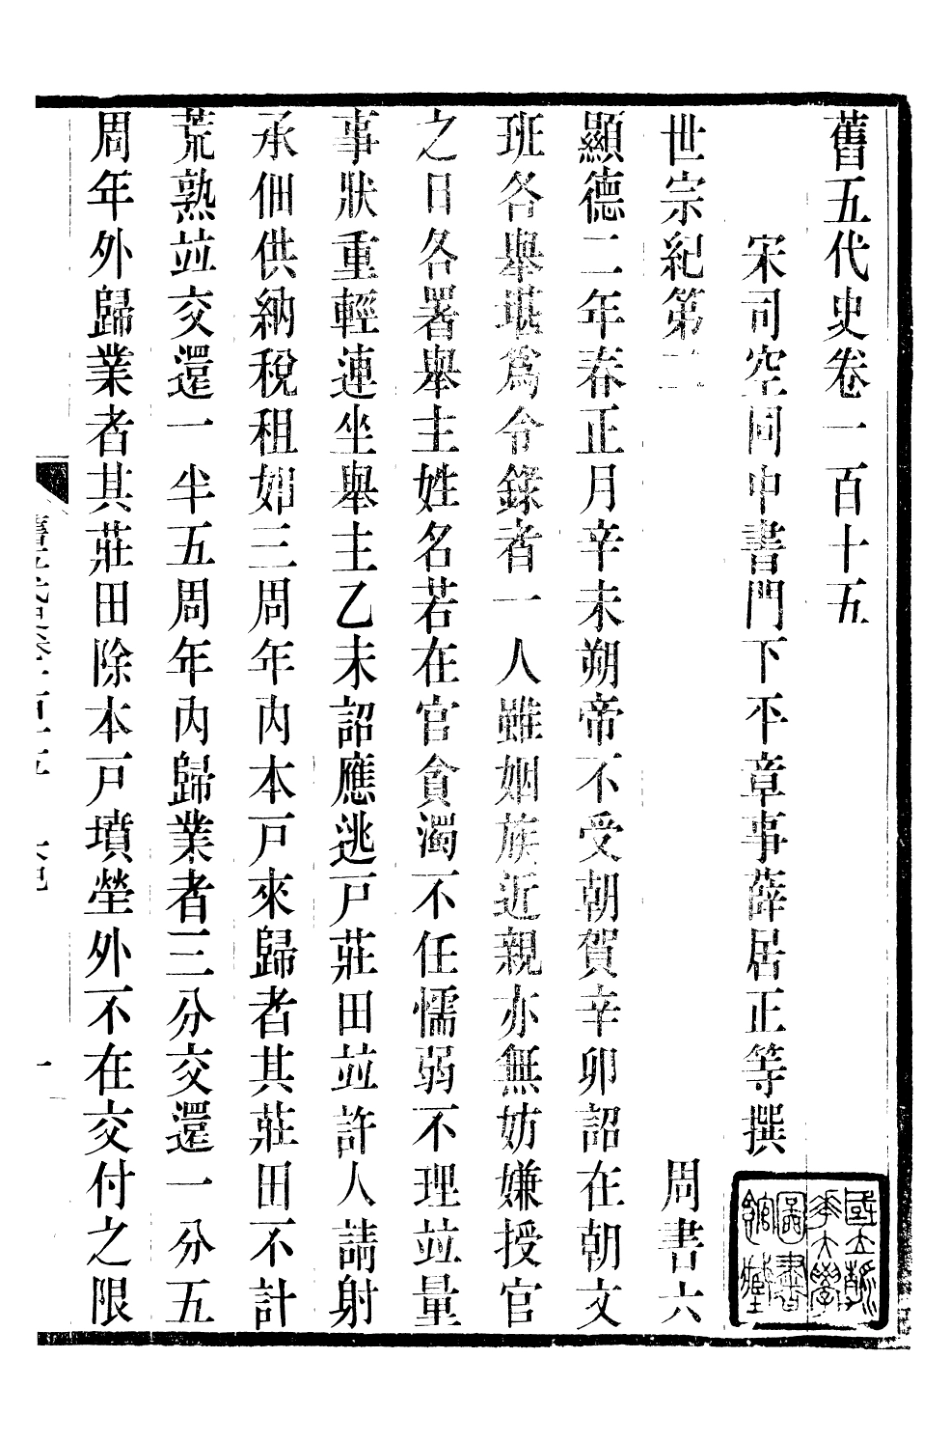 舊五代史卷一百十五
宋司空同中書門下平章事薛居正等撰
世宗紀第二 周書六
顯德二年春正月辛未朔帝不受朝賀辛卯詔在朝文
班各舉堪爲令錄者一人雖姻族近親亦無妨嫌授官
之日各署舉主姓名若在官貪濁不任懦弱不理並量
事狀重輕連坐舉主乙未詔應逃戸莊田並許人請射
承佃供納稅租如三周年內本戸來歸者其莊田不計
荒熟並交還一半五周年內歸業者三分交還一分五
周年外歸業者其莊田除本戸墳塋外不在交付之限
舊五代史卷一百十五 本紀 一